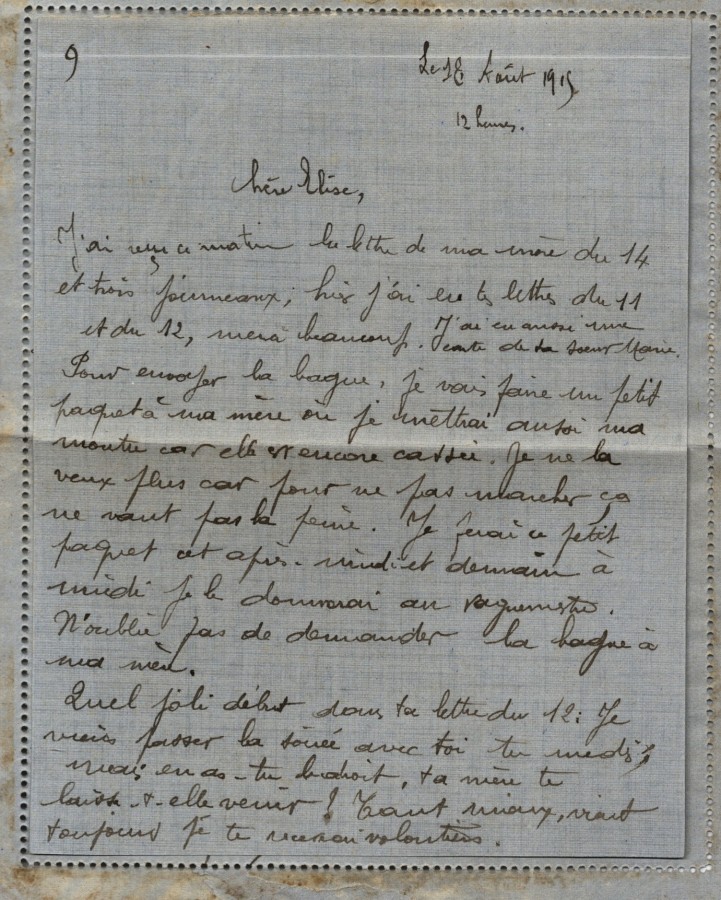 9
Le 18 Août 1915
12 heures.
Chère Elise,
J'ai reçu ce matin la lettre de ma mère du 14
et trois journeaux, hier j'ai eu tes lettres du 11
et du 12, merci beaucoup. J'ai eu aussi une
carte de ta soeur Marie.
Pour envoyer la bague, je vais faire un petit
paquet à ma mère où je mettrai aussi ma
montre car elle est encore cassée. Je ne la
veux plus car pour ne pas marcher ça
ne vaut pas la peine. Je ferai ce petit
paquet cet après-midi et demain à
midi je le donnerai au vaguemestre.
N'oublie pas de demander la bague à
ma mère.
Quel joli début dans ta lettre du 12: Je
viens passer la soirée avec toi tu me dis,
mais en as-tu le droit, ta mère te
laisse-t-elle venir? Tant mieux, vient
toujours je te recevrai volontiers.